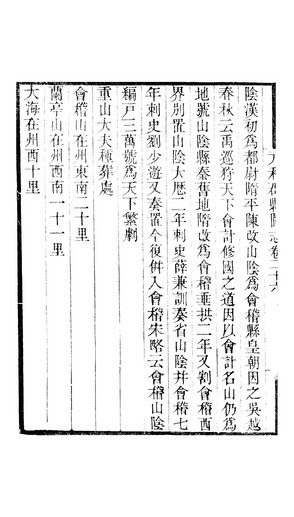 元和郡縣圖志卷二十六
陰漢初爲都尉隋平陳改山陰爲會稽縣皇朝因之吳越
春秋云禹巡狩天下會計修國之道因以會計名山仍爲
地號山陰縣秦舊地隋改爲會稽垂拱二年又割會稽西
界別置山陰大歷二年刺史薛兼訓奏省山陰并會稽七
年刺史劉少遊又奏置今復併入會稽宋略云會稽山陰
編戶三萬號爲天下繁劇
重山大夫種葬處
會稽山在州東南二十里
蘭亭山在州西南二十一里
大海在州西十里